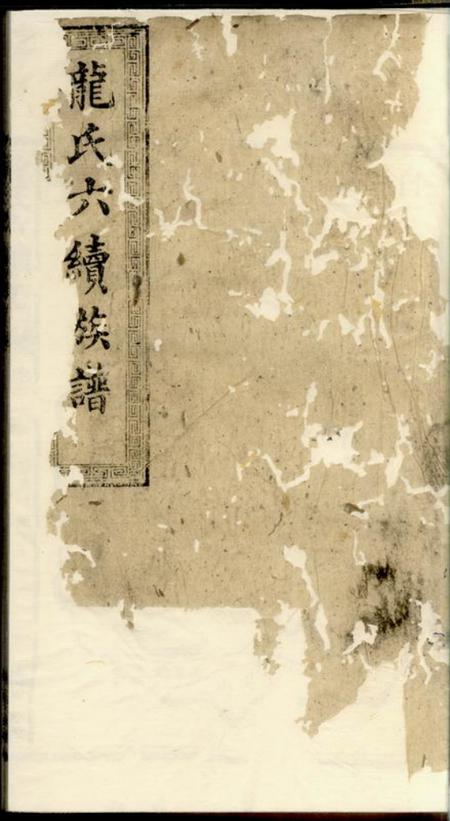 龍氏六續族譜